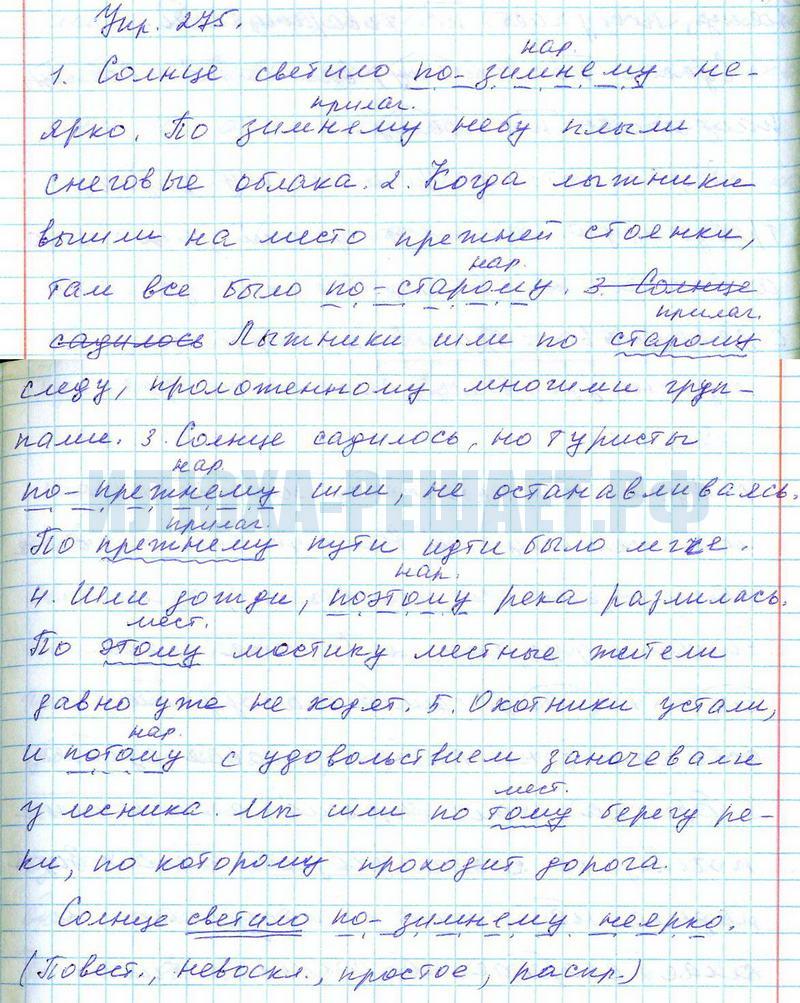 Упр. 275.
нар.
1. Солнце светило по-зимнему не-
прилаг.
ярко. По зимнему небу плыли
снеговые облака. 2. Когда лыжники
вышли на место прежней стоянки,
нар.
там все было по-старому. 3. Солнце
прилаг.
садилось Лыжники шли по старому
следу, проложенному многими груп-
пами. 3. Солнце садилось, но туристы
нар.
по-прежнему шли, не останавливаясь.
ИЛЮХА-РЕШАЕТ.РФ
прилаг.
По прежнему пути идти было легче.
нар.
4. Шли дожди, поэтому река разлилась.
мест.
По этому мостику местные жители
давно уже не ходят. 5. Охотники устали,
нар.
и потому с удовольствием заночевали
мест.
у лесника. Мы шли по тому берегу ре-
ки, по которому проходит дорога.
Солнце светило по-зимнему неярко.
(Повест., невоскл., простое, распр.)